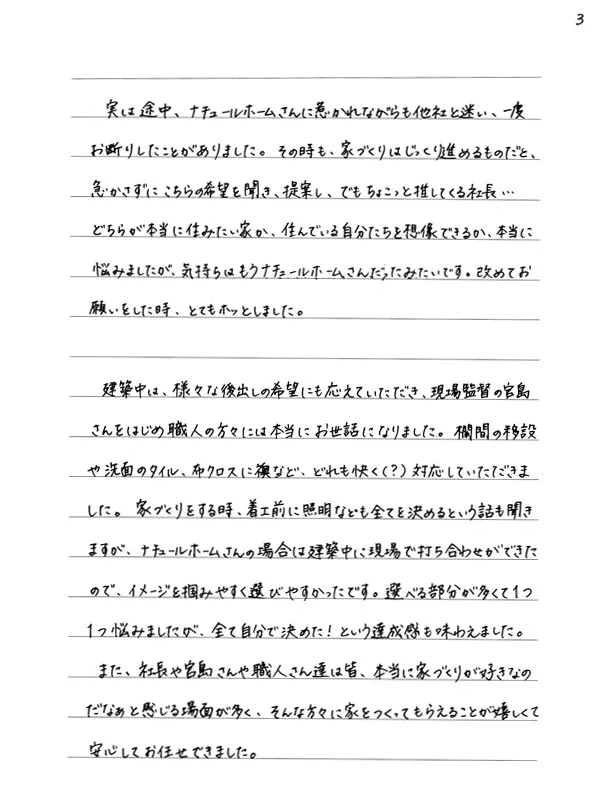 3
実は途中、ナチュールホームさんに惹かれながらも他社と迷い、一度
お断りしたことがありました。その時も、家づくりはじっくり進めるものだと、
急かさずにこちらの希望を聞き、提案し、でもちょこっと推してくる社長…
どちらが本当に住みたい家か、住んでいる自分たちを想像できるか、本当に
悩みましたが、気持ちはもうナチュールホームさんだったみたいです。改めてお
願いをした時、とてもホッとしました。
建築中は、様々な後出しの希望にも応えていただき、現場監督の宮島
さんをはじめ職人の方々には本当にお世話になりました。欄間の移設
や洗面のタイル、布クロスに襖など、どれも快く(?)対応していただきま
した。家づくりをする時、着工前に照明なども全てを決めるという話も聞き
ますが、ナチュールホームさんの場合は建築中に現場で打ち合わせができた
ので、イメージを掴みやすく選びやすかったです。選べる部分が多くて1つ
1つ悩みましたが、全て自分で決めた!という達成感も味わえました。
また、社長や宮島さんや職人さん達は皆、本当に家づくりが好きなの
だなぁと感じる場面が多く、そんな方々に家をつくってもらえることが嬉しくて
安心してお任せできました。